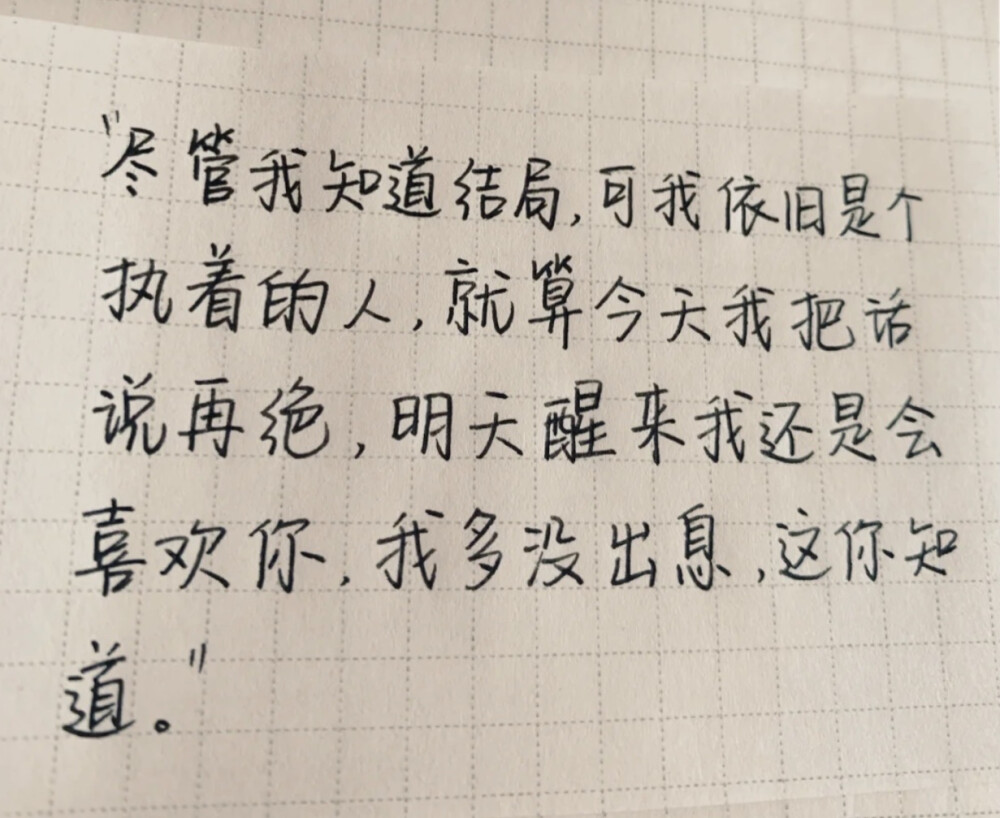 "尽管我知道结局,可我依旧是个
执着的人,就算今天我把话
说再绝,明天醒来我还是会
喜欢你,我多没出息,这你知
道。"